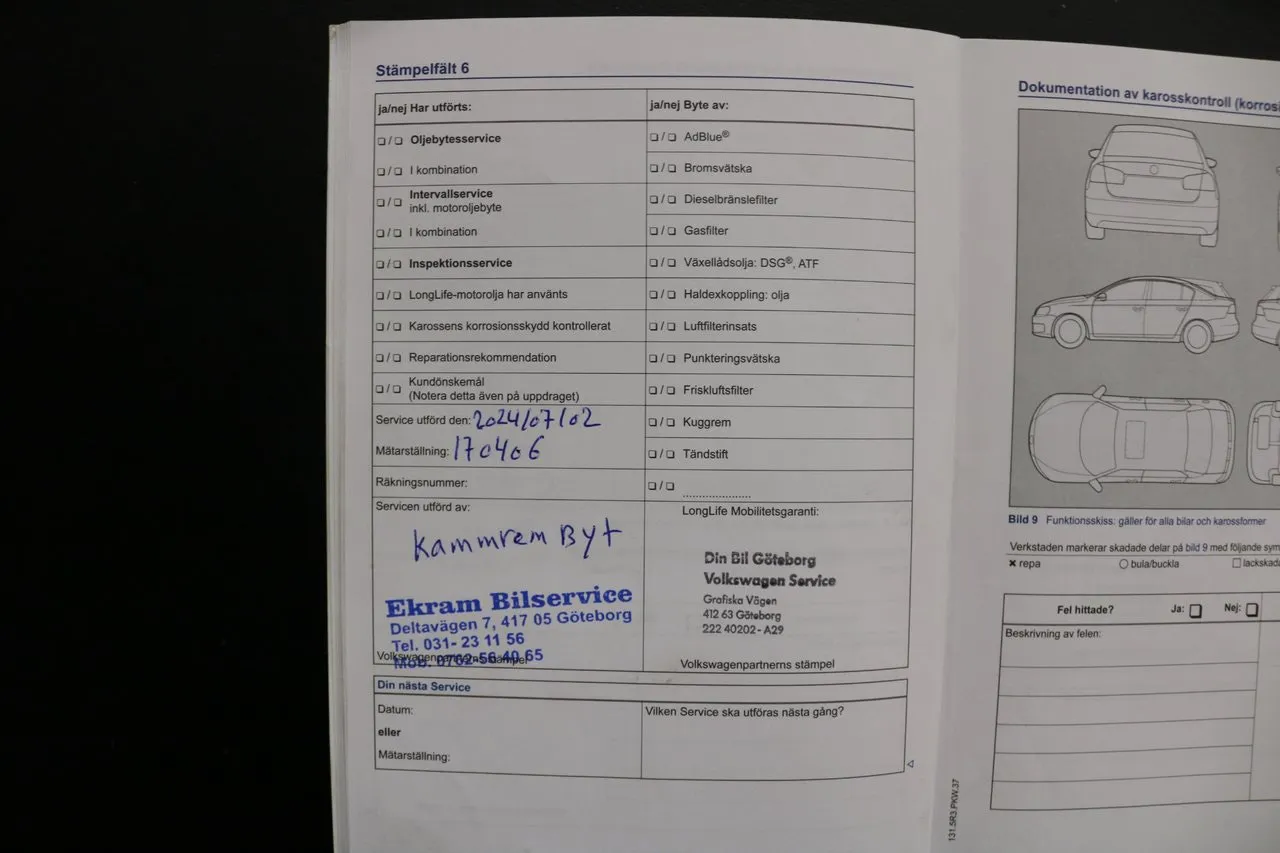 Stämpelfält 6
ja/nej Har utförts:
❏ / ❏ Oljebytesservice
❏ / ❏ I kombination
❏ / ❏ Intervallservice
inkl. motoroljebyte
❏ / ❏ I kombination
❏ / ❏ Inspektionsservice
❏ / ❏ LongLife-motorolja har använts
❏ / ❏ Karossens korrosionsskydd kontrollerat
❏ / ❏ Reparationsrekommendation
❏ / ❏ Kundönskemål
(Notera detta även på uppdraget)
Service utförd den: 2024/07/02
Mätarställning: 170406
Räkningsnummer:
Servicen utförd av:
Kammrem Byt
Ekram Bilservice
Deltavägen 7, 417 05 Göteborg
Tel. 031- 23 11 56
Mob. 0762-56 40 65
Volkswagenpartnerns stämpel
ja/nej Byte av:
❏ / ❏ AdBlue®
❏ / ❏ Bromsvätska
❏ / ❏ Dieselbränslefilter
❏ / ❏ Gasfilter
❏ / ❏ Växellådsolja: DSG®, ATF
❏ / ❏ Haldexkoppling: olja
❏ / ❏ Luftfilterinsats
❏ / ❏ Punkteringsvätska
❏ / ❏ Friskluftsfilter
❏ / ❏ Kuggrem
❏ / ❏ Tändstift
❏ / ❏ .....................
LongLife Mobilitetsgaranti:
Din Bil Göteborg
Volkswagen Service
Grafiska Vägen
412 63 Göteborg
222 40202 - A29
Volkswagenpartnerns stämpel
Din nästa Service
Datum:
eller
Mätarställning:
Vilken Service ska utföras nästa gång?
Dokumentation av karosskontroll (korros
Bild 9 Funktionsskiss: gäller för alla bilar och karossformer
Verkstaden markerar skadade delar på bild 9 med följande sym
✖ repa ○ bula/buckla □ lackskada
Fel hittade? Ja: ❏ Nej: ❏
Beskrivning av felen:
131.5R3.PKW.37